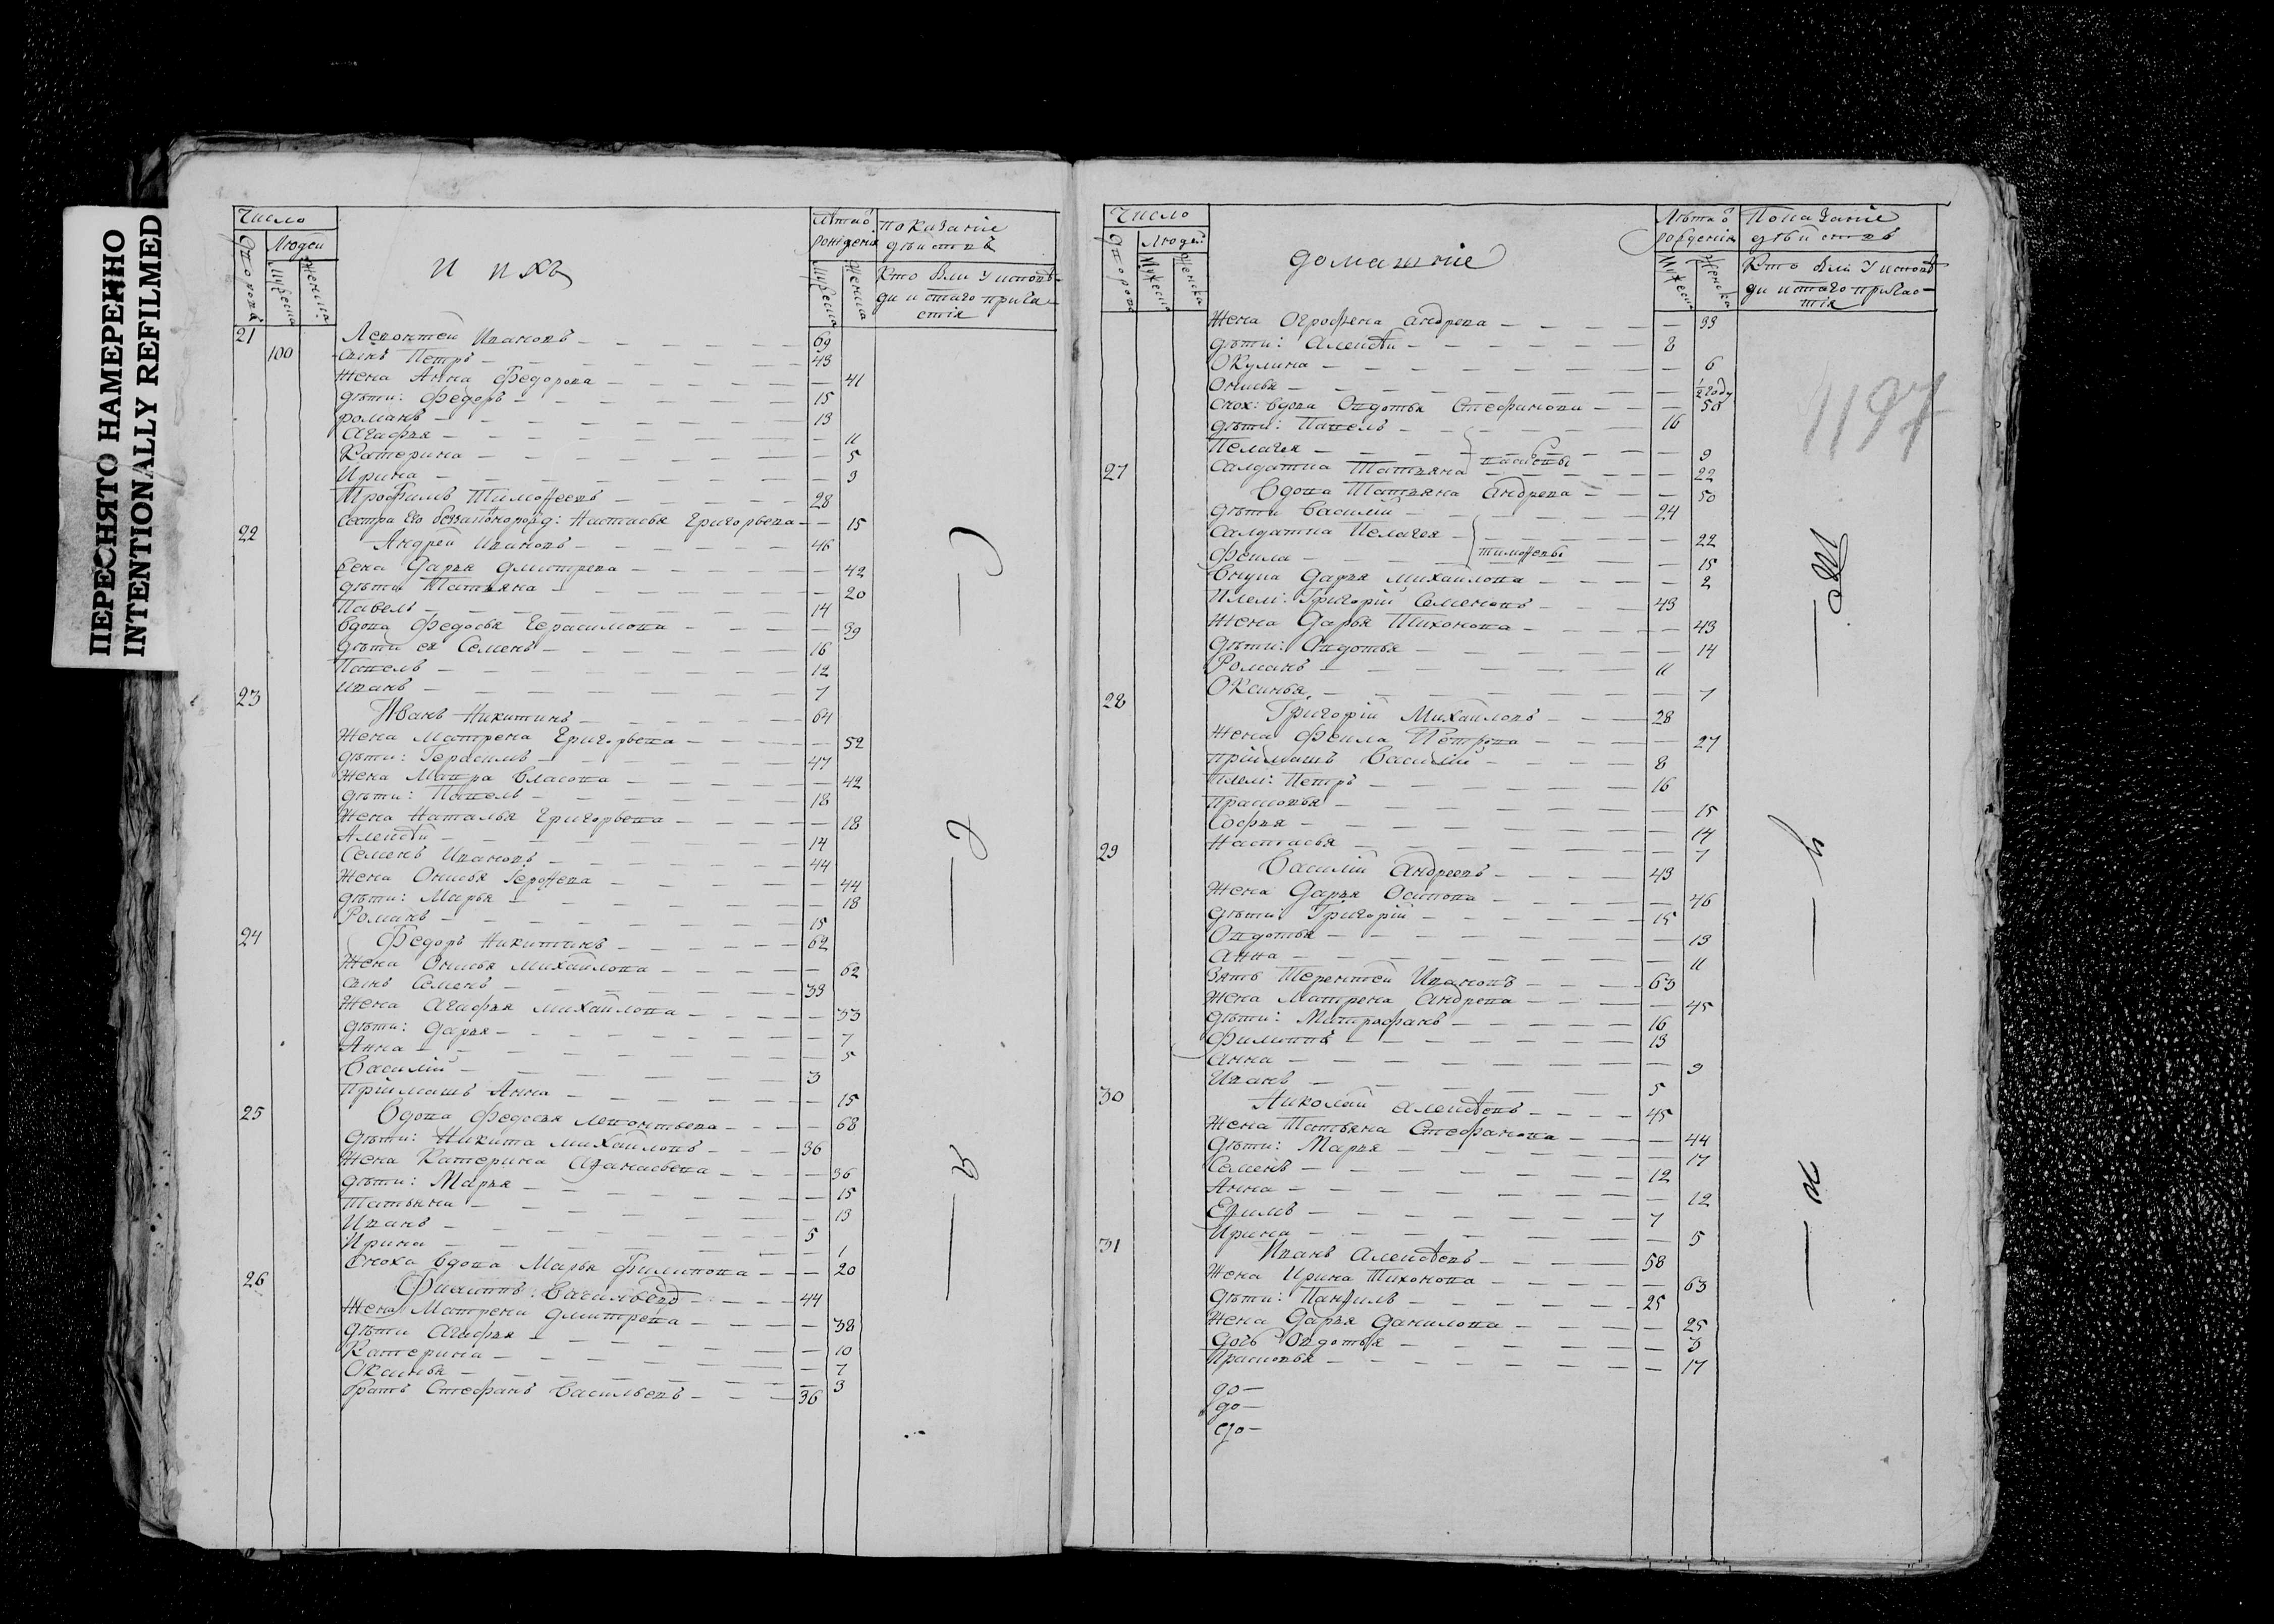 ПЕРЕСНЯТО НАМЕРЕННО
INTENTIONALLY REFILMED
Число
Людей
и ихъ
Лѣта ѿ рожденія
показаніе дѣйствъ
Кто былъ у исповѣди и стаго причастія
21 Леонтей Ивановъ 69
100 сынъ Петръ 43
Жена Анна Федорова 41
дѣти: Федоръ 15
романъ 13
Агафья 11
Катерина 5
Ирина 3
Трофимъ Тимофеевъ 28
сестра его Настасья Григорьева 15
22 Андрей Ивановъ 46
Жена Дарья Дмитрева 42
дѣти Татьяна 20
Павелъ 14
вдова Федосья Герасимова 39
дѣти ея Семенъ 16
Павелъ 12
иванъ 7
23 Иванъ Никитинъ 64
Жена Матрена Григорьева 52
дѣти: Герасимъ 47
жена Мавра Власова 42
дѣти: Павелъ 18
Жена Наталья Григорьева 18
Алексѣй 14
Семенъ Ивановъ 44
Жена Онисья 44
дѣти: Марья 18
Романъ 15
24 Федоръ Никитинъ 62
Жена Онисья Михайлова 62
сынъ Семенъ 33
Жена Агафья Михайлова 33
дѣти: Дарья 7
Анна 5
Василій 3
пріймашъ Анна 15
25 Вдова Федосья Леонтьева 68
дѣти: Никита Михайловъ 36
Жена Катерина Афанасьева 36
дѣти: Марья 15
Татьяна 13
Иванъ 5
Ирина 1
сноха вдова Марья Филипова 20
26 Филиппъ Васильевъ 44
Жена Матрена Дмитрева 38
дѣти Агафья 10
Катерина 7
Оксинья 3
братъ Стефанъ Васильевъ 36
Число
Людей
домашніе
Лѣта ѿ рожденія
Показаніе дѣйствъ
Кто былъ у исповѣди и стаго причастія
1197
Жена Огрофена Андрева 33
дѣти: Алексѣй 8
Окулина 6
Онисья 1/2 году
снох: вдова Овдотья Стефанова 50
дѣти: Павелъ 16
Пелагея 9
27 салдатка Татьяна 22
Вдова Татьяна Андрева 50
дѣти Василій 24
Салдатка Пелагея 22
Фекла 15
Внука Дарья Михайлова 2
Плем: Григорій Семеновъ 43
Жена Дарья Тихонова 43
дѣти: Овдотья 14
Романъ 11
Оксинья 7
28 Григорій Михайловъ 28
Жена Фекла Петрова 27
пріймашъ Василій 8
плем: Петръ 16
Прасковья 15
Софья 14
Настасья 7
29 Василій Андреевъ 43
Жена Дарья Осипова 46
дѣти: Григорій 15
Овдотья 13
Анна 11
Зять Терентей Ивановъ 63
Жена Матрена Андрева 45
дѣти: Митрофанъ 16
Филиппъ 13
Анна 9
Иванъ 5
30 Николай Алексѣевъ 45
Жена Татьяна Стефанова 44
дѣти: Марья 17
Семенъ 12
Анна 12
Ефимъ 7
Ирина 5
31 Иванъ Алексѣевъ 58
Жена Ирина Тихонова 63
дѣти: Панфилъ 25
Жена Дарья Данилова 25
Дочь Овдотья 3
Прасковья 17
до
до
до